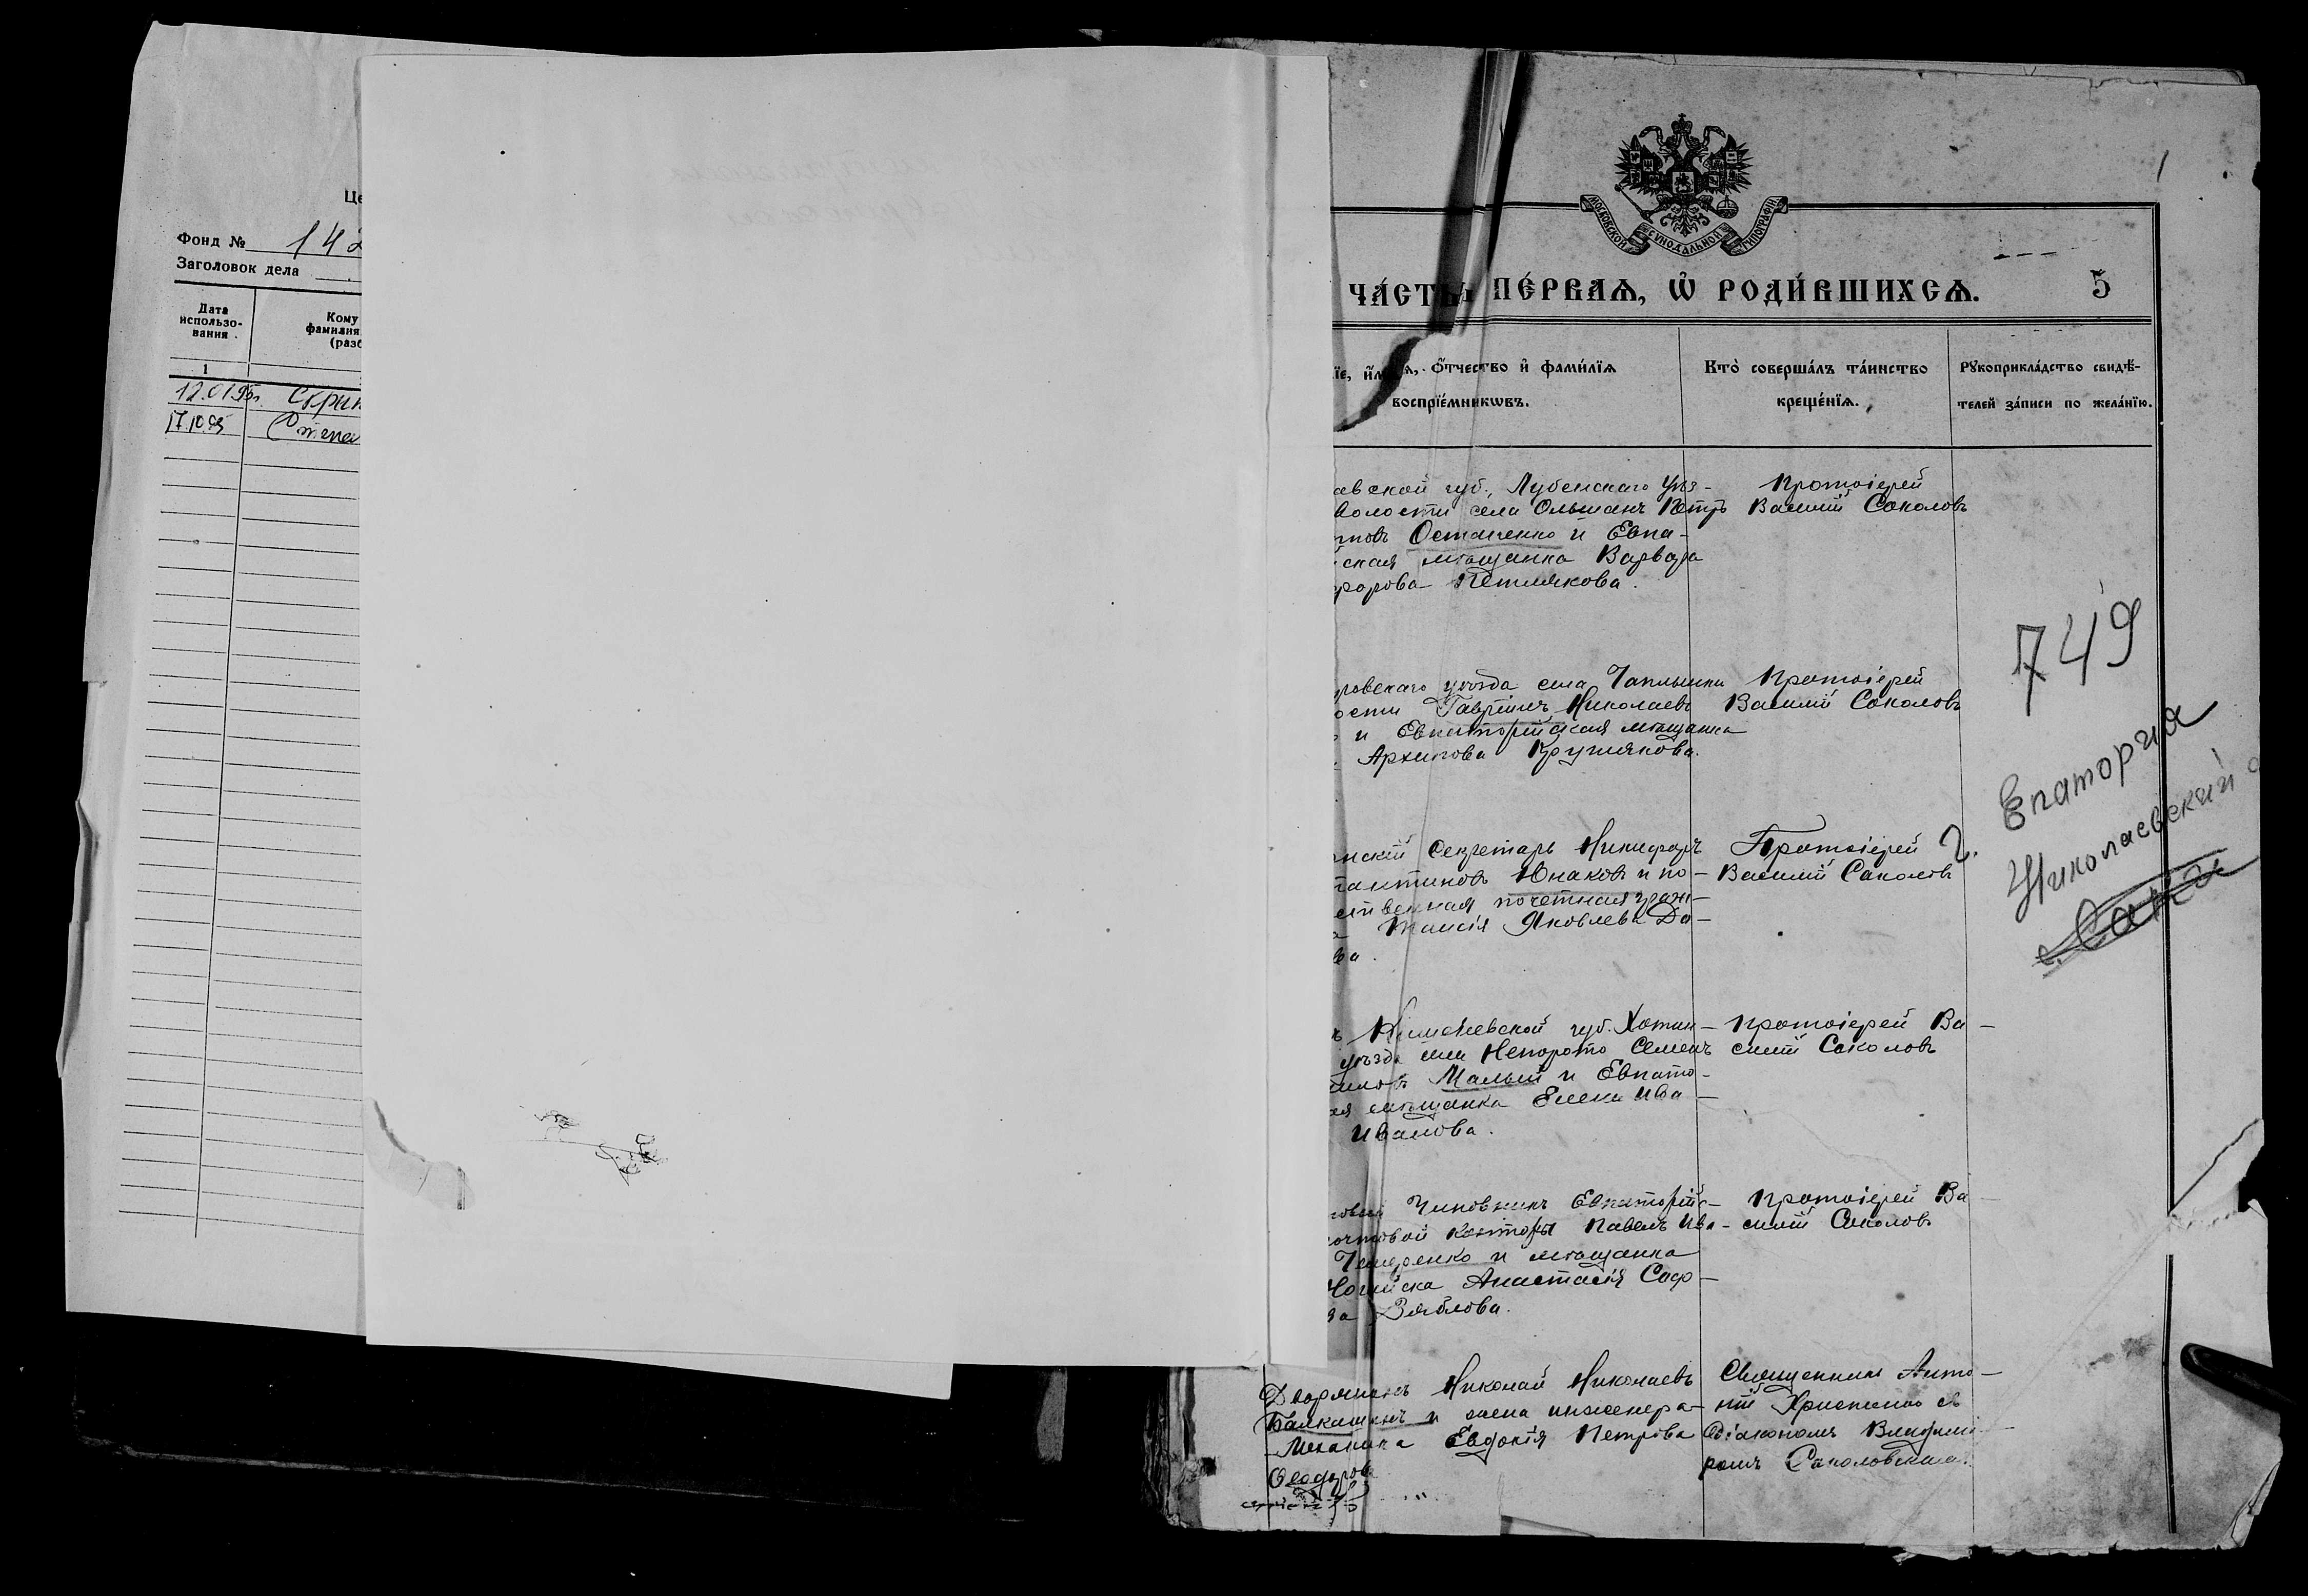 Це
Фонд № 142
Заголовок дела
Дата использо-вания
Кому
фамилия
(разб
1
12.01.95г. Скрип
17.10.95 Степа
МОСКОВСКОЙ СѴНОДАЛЬНОЙ ТИПОГРАФІИ
1
ЧА́СТЬ ПЕ́РВАѦ, Ѡ҆ РОДИ́ВШИХСѦ.
5
їе, и҆́мѧ, ѻ҆́тчество и҆ фами́лїѧ
воспрїе́мникѡвъ.
Кто̀ соверша́лъ та́инство
креще́нїѧ.
Рꙋкоприкла́дство свидѣ́-
телей за́писи по жела́нїю.
авской губ., Лубенскаго уѣз-
волости села Ольшанъ Петръ
Остапенко и Евпа-
ская мѣщанка Варвара
форова Петлякова.
Протоіерей
Василій Соколовъ
ровскаго уѣзда села Чаплынки
ости Гавріилъ Николаевъ
и Евпаторійская мѣщанка
Архипова Круглякова.
Протоіерей
Василій Соколовъ
нскій Секретарь Никифоръ
тантиновъ Юнаковъ и по-
ственная почетная граж-
а Таисія Яковлева До-
ва.
Протоіерей
Василій Соколовъ
ъ Кишеневской губ. Хотин-
уѣзда села Непорото Семенъ
Малый и Евпато-
ая мѣщанка Елена Ива-
Иванова.
Протоіерей Ва-
силій Соколовъ
Чиновникъ Евпаторійс-
очтовой Конторы Павелъ Ива-
и мѣщанка
Анастасія Саф-
ва Зяблова.
Протоіерей Ва-
силій Соколовъ
Дворянинъ Николай Николаевъ
Балкашинъ и жена инженера-
Механика Евдокія Петрова
Ѳеодорова
Священникъ Анто-
ній съ
Діакономъ Владими-
ромъ Соколовскимъ.
749
г. Епатория
Николаевский
с. Саки